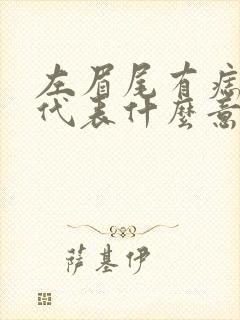 左眉尾有痣
代表什麼意
萨基伊